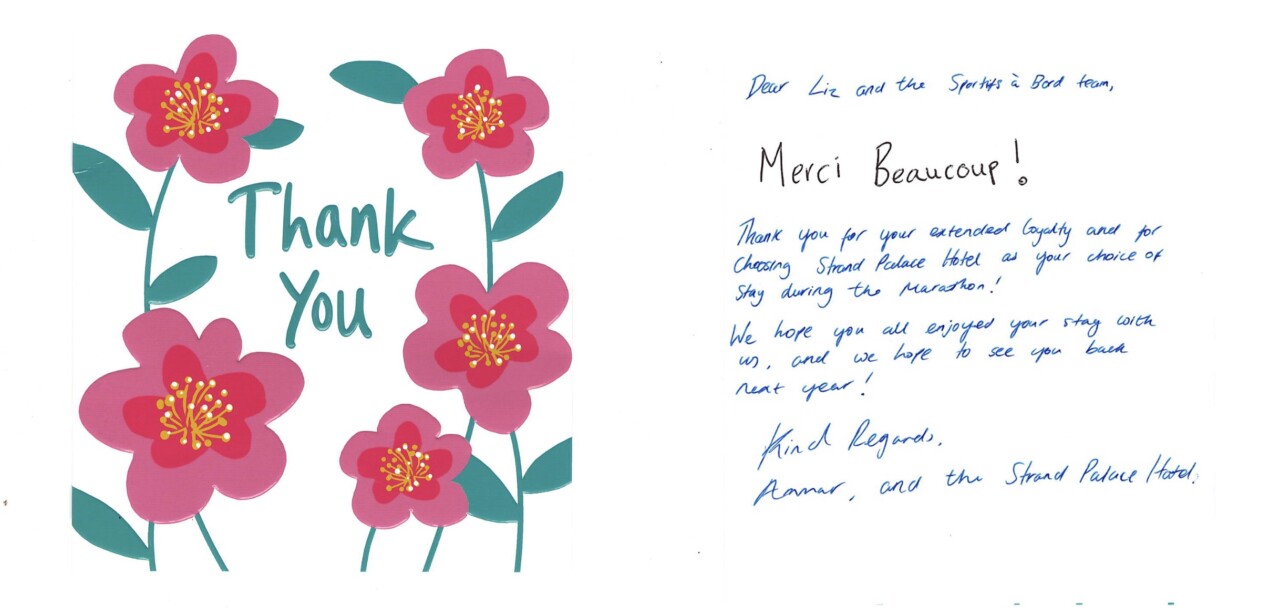 Thank
You
Dear Liz and the Sportifs à Bord team,
Merci Beaucoup!
Thank you for your extended loyalty and for
choosing Strand Palace Hotel as your choice of
stay during the Marathon!
We hope you all enjoyed your stay with
us, and we hope to see you back
next year!
Kind Regards,
Ammar, and the Strand Palace Hotel.